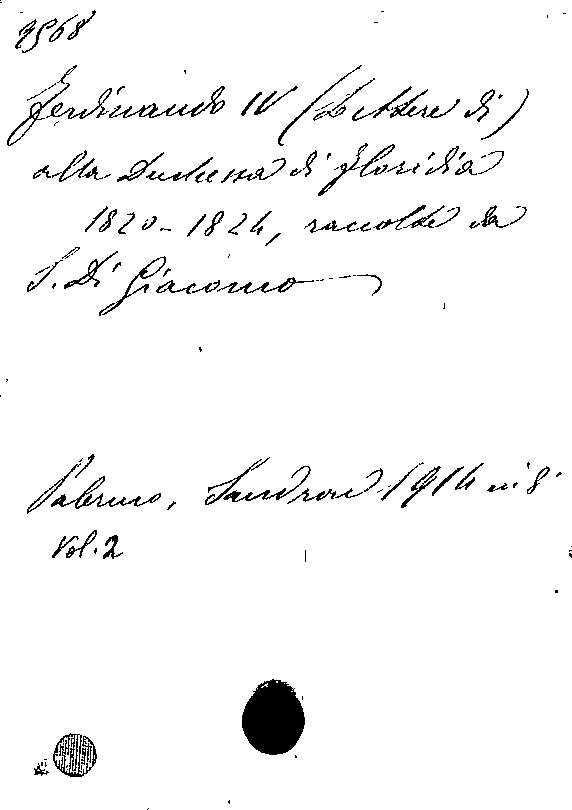 9568
Ferdinando IV (Lettere di)
alla Duchessa di Floridia
1820-1824, raccolte da
S. Di Giacomo
Palermo, Sandron 1914 in 8°
Vol. 2